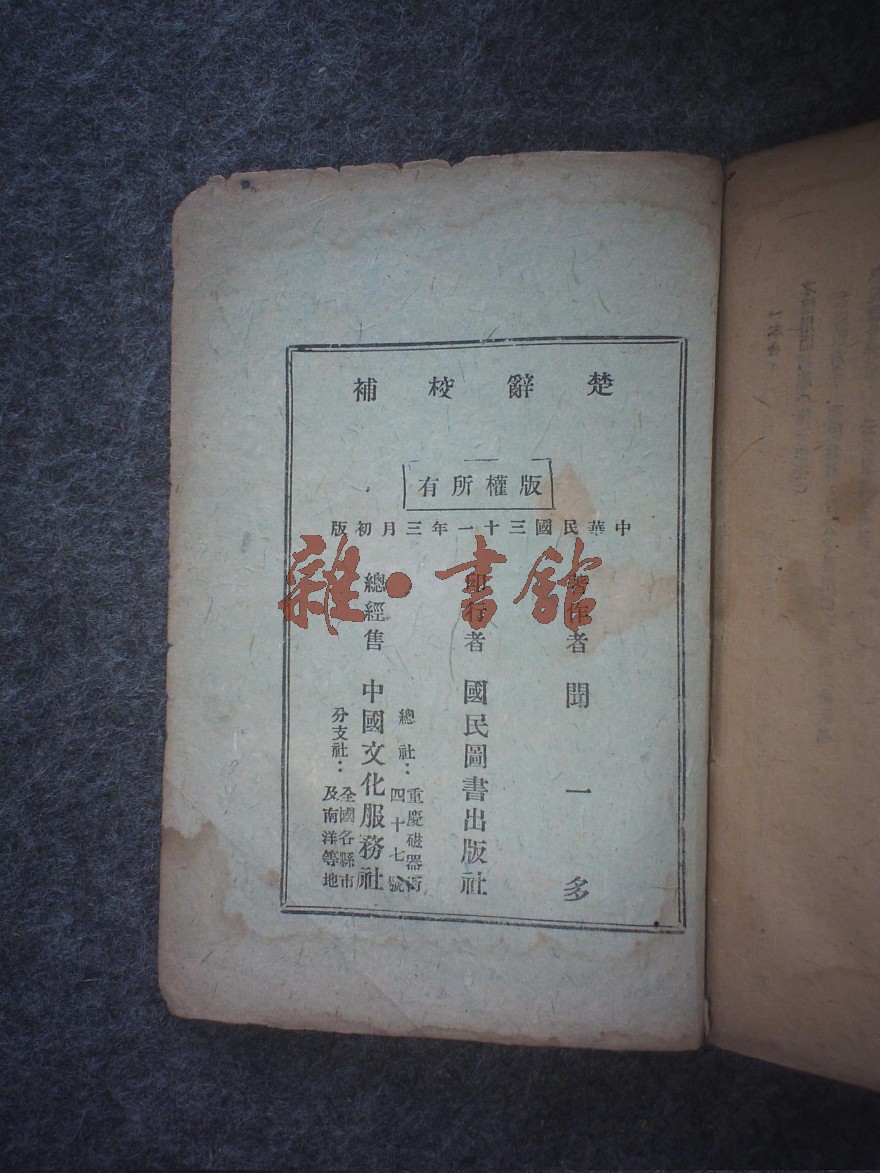 楚辭校補
版權所有
中華民國三十一年三月初版
著作者 聞一多
印行者 國民圖書出版社
總經售 中國文化服務社
總社：重慶磁器街四十七號
分支社：全國各縣市及南洋等地
雜·書館